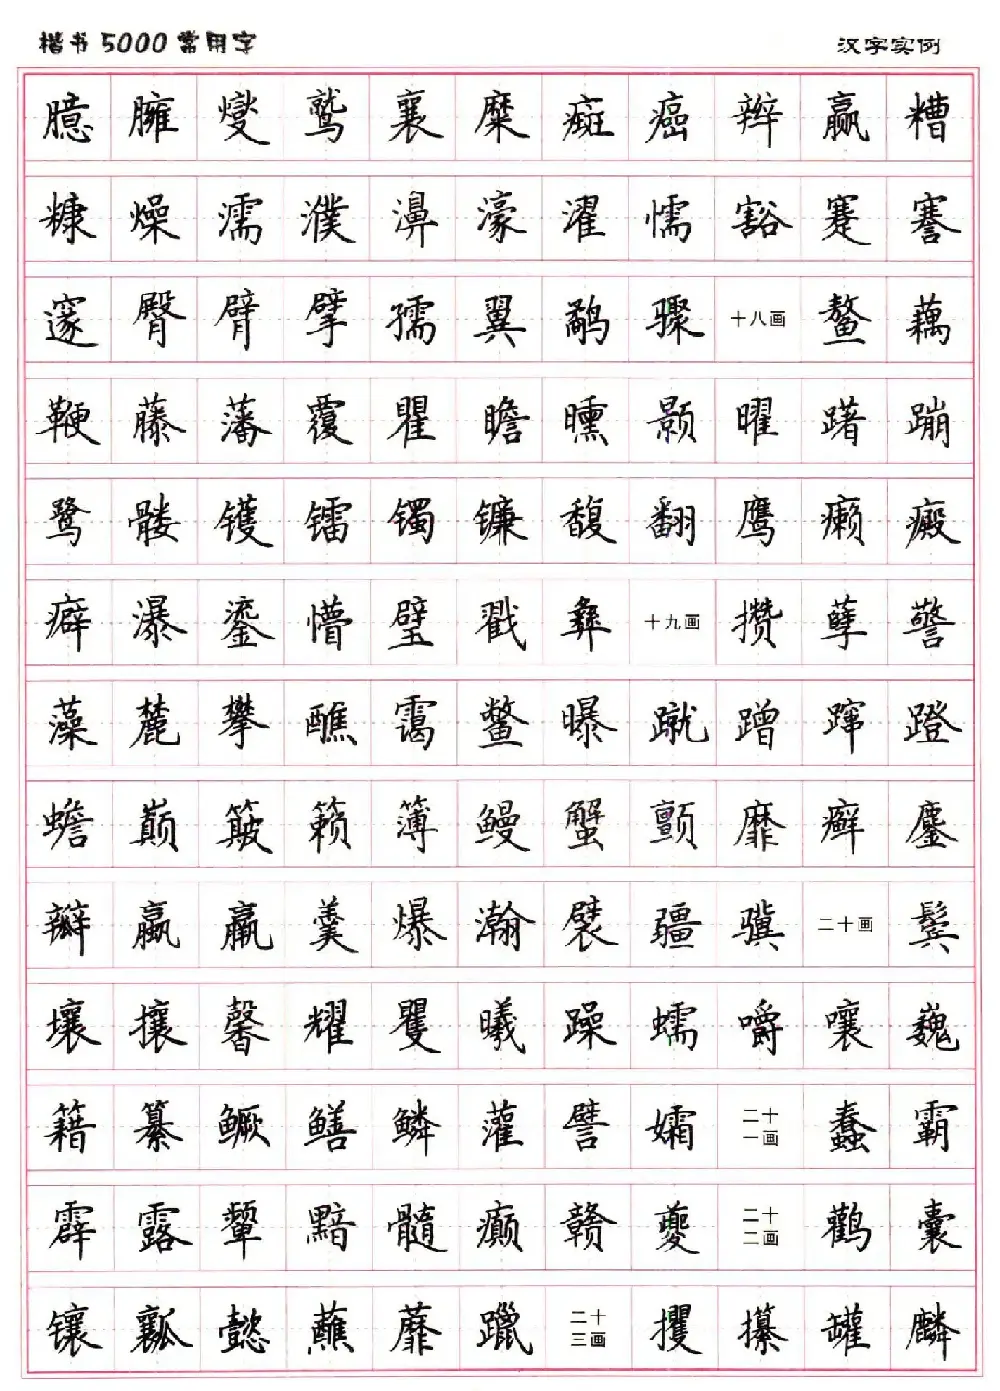 楷书5000常用字 汉字实例
臆 臃 燮 鹫 襄 糜 癍 癌 辫 赢 糟
糠 燥 濡 濮 濞 濠 濯 懦 豁 蹇 謇
邃 臀 臂 擘 孺 翼 鹬 骤 十八画 鳌 藕
鞭 藤 藩 覆 瞿 瞻 曛 颢 曜 躇 蹦
鹭 髅 镬 镭 镯 镰 馥 翻 鹰 癞 癜
癖 瀑 鎏 懵 璧 戳 彝 十九画 攒 孽 警
藻 麓 攀 醮 霭 鳖 曝 蹴 蹭 蹿 蹬
蟾 巅 簸 籁 簿 鳗 蟹 颤 靡 癣 鏖
瓣 蠃 羸 羹 爆 瀚 襞 疆 骥 二十画 鬓
壤 攘 馨 耀 矍 曦 躁 蠕 嚼 嚷 巍
籍 纂 鳜 鳝 鳞 灌 譬 孀 二十一画 蠢 霸
霹 露 颦 黯 髓 癫 赣 夔 二十二画 鹳 囊
镶 瓤 懿 蘸 蘼 躐 二十三画 攫 攥 罐 麟